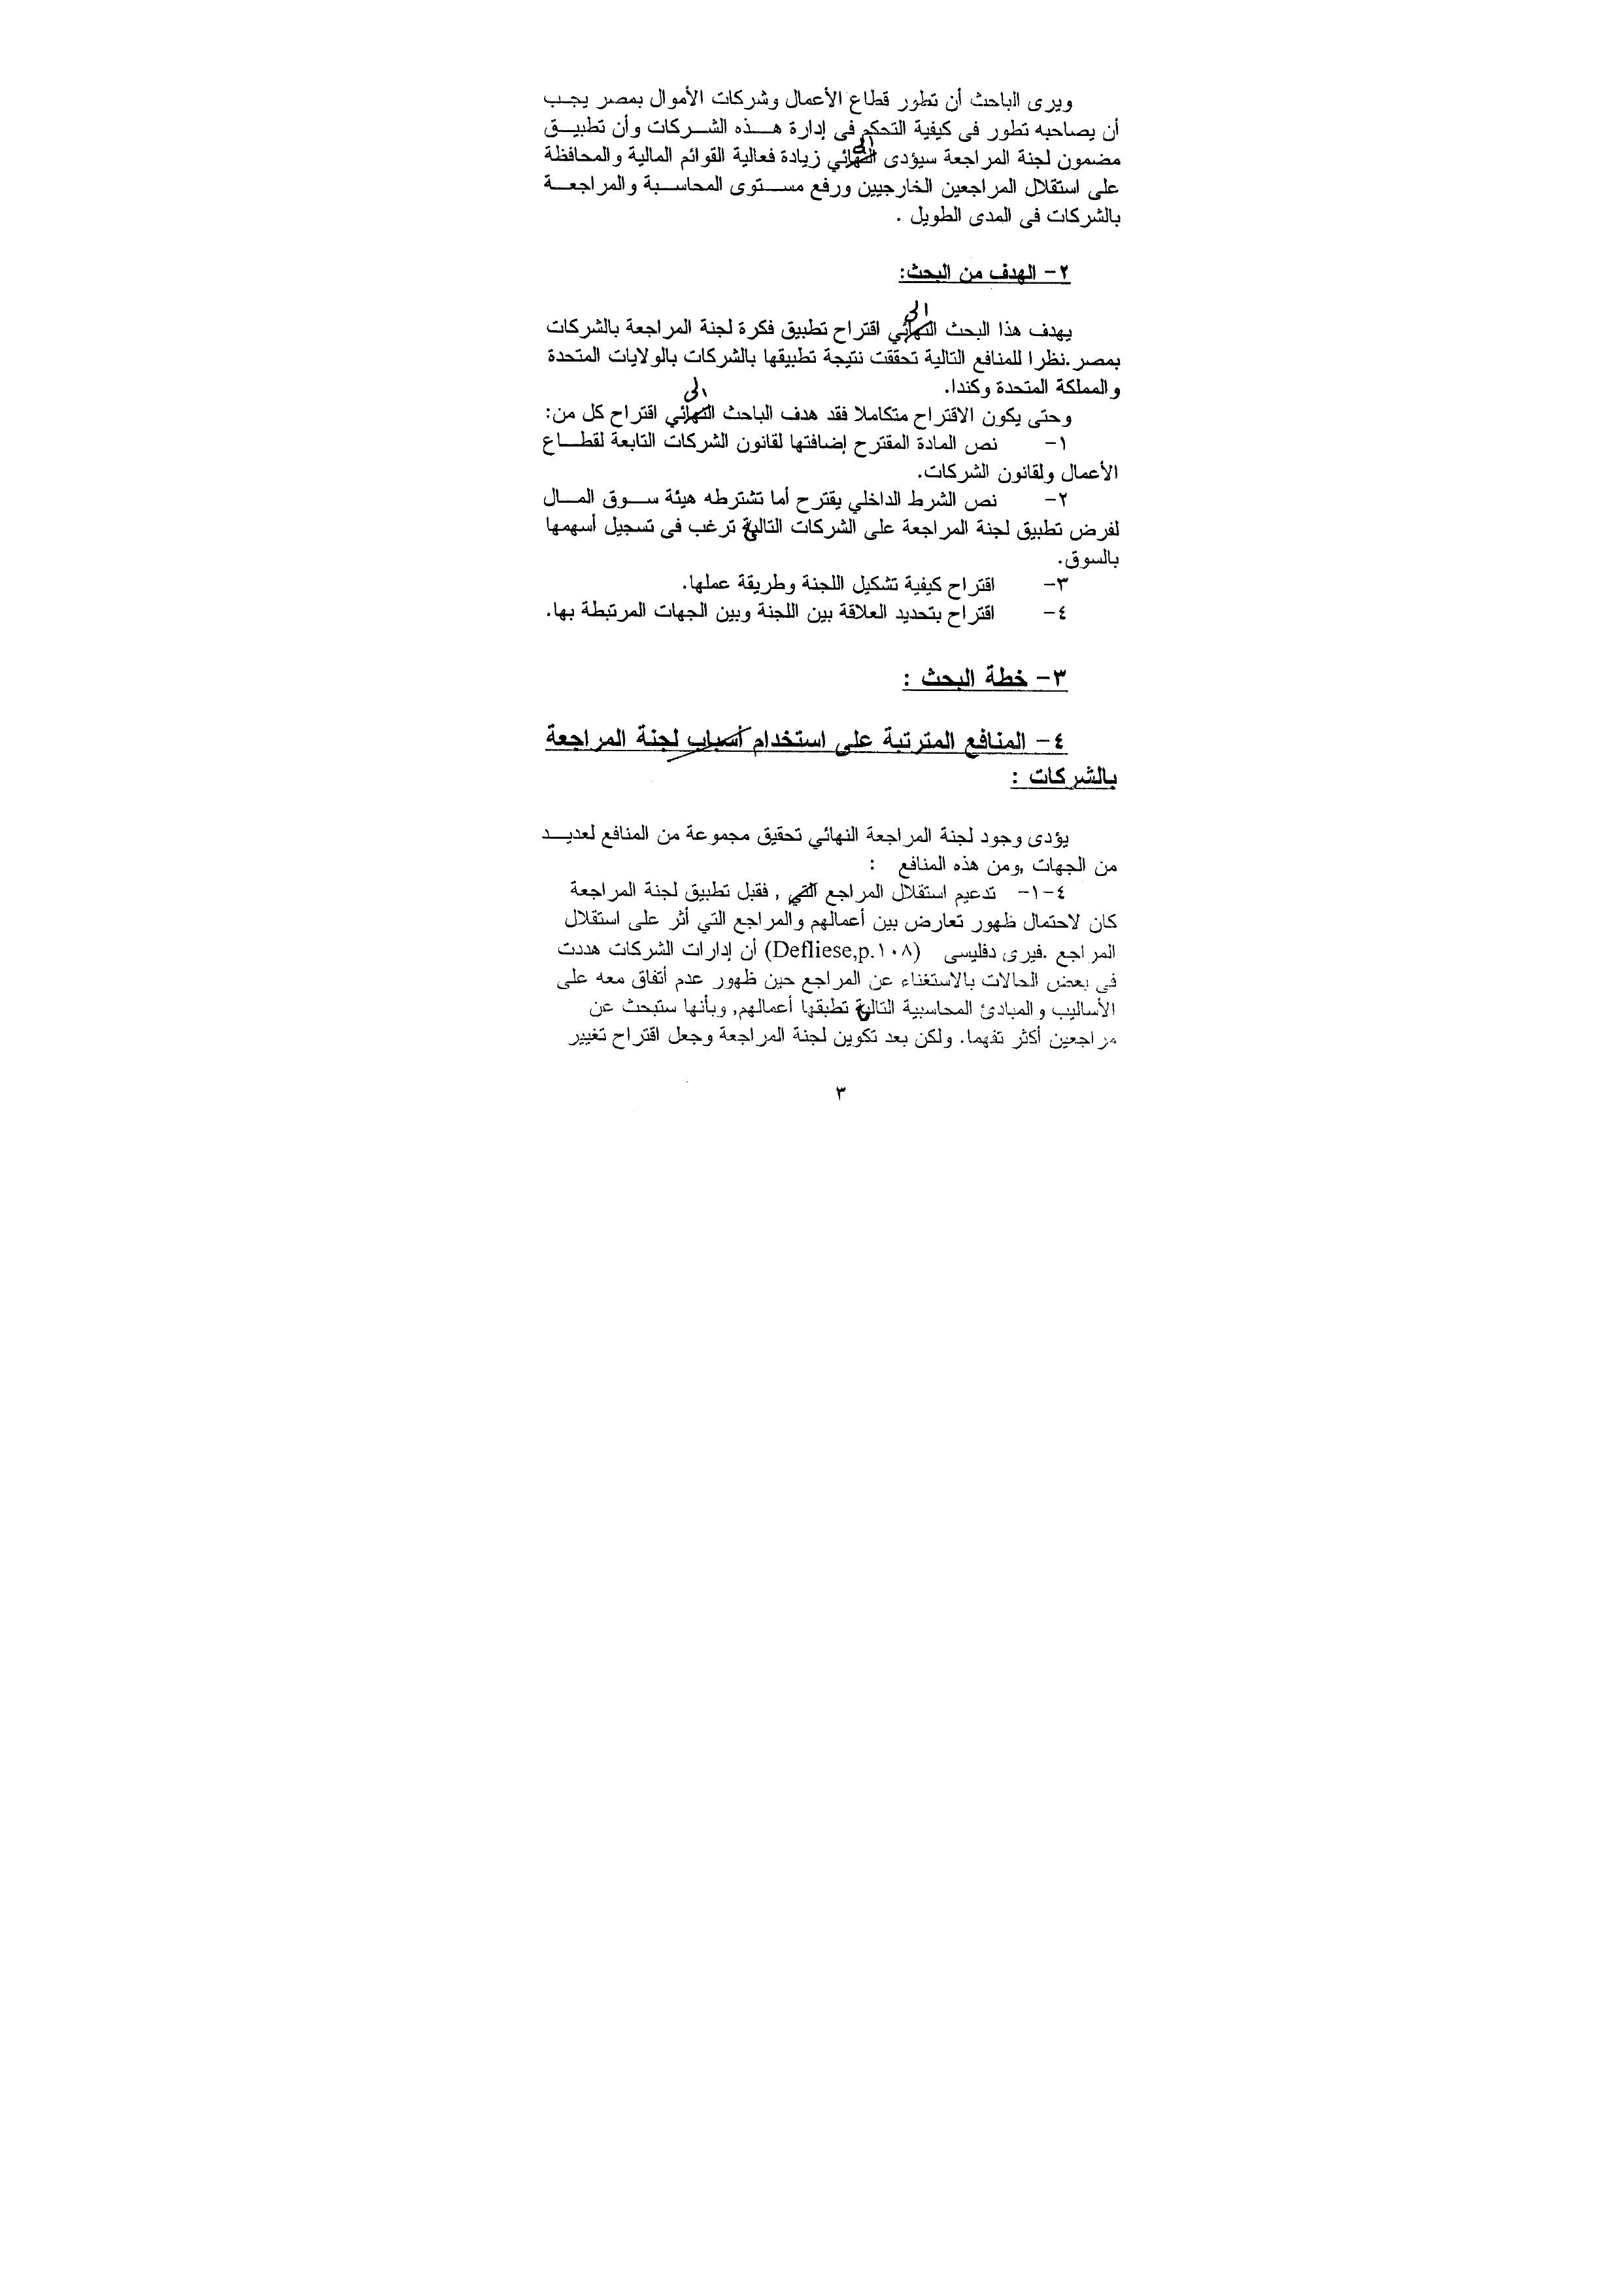 ويرى الباحث أن تطور قطاع الأعمال وشركات الأموال بمصر يجب
أن يصاحبه تطور فى كيفية التحكم فى إدارة هذه الشركات وأن تطبيق
إلى
مضمون لجنة المراجعة سيؤدى النهائي زيادة فعالية القوائم المالية والمحافظة
على استقلال المراجعين الخارجيين ورفع مستوى المحاسبة والمراجعة
بالشركات فى المدى الطويل .
٢- الهدف من البحث:
إلى
يهدف هذا البحث النهائي اقتراح تطبيق فكرة لجنة المراجعة بالشركات
بمصر.نظرا للمنافع التالية تحققت نتيجة تطبيقها بالشركات بالولايات المتحدة
والمملكة المتحدة وكندا.
إلى
وحتى يكون الاقتراح متكاملا فقد هدف الباحث النهائي اقتراح كل من:
١- نص المادة المقترح إضافتها لقانون الشركات التابعة لقطاع
الأعمال ولقانون الشركات.
٢- نص الشرط الداخلي يقترح أما تشترطه هيئة سوق المال
لفرض تطبيق لجنة المراجعة على الشركات التالية ترغب فى تسجيل أسهمها
بالسوق.
٣- اقتراح كيفية تشكيل اللجنة وطريقة عملها.
٤- اقتراح بتحديد العلاقة بين اللجنة وبين الجهات المرتبطة بها.
٣- خطة البحث :
٤- المنافع المترتبة على استخدام أسباب لجنة المراجعة
بالشركات :
يؤدى وجود لجنة المراجعة النهائي تحقيق مجموعة من المنافع لعديد
من الجهات ,ومن هذه المنافع :
٤-١- تدعيم استقلال المراجع التي , فقبل تطبيق لجنة المراجعة
كان لاحتمال ظهور تعارض بين أعمالهم والمراجع التي أثر على استقلال
المراجع .فيرى دفليسى (Defliese,p.١٠٨) أن إدارات الشركات هددت
فى بعض الحالات بالاستغناء عن المراجع حين ظهور عدم أتفاق معه على
الأساليب والمبادئ المحاسبية التالية تطبقها أعمالهم, وبأنها ستبحث عن
مراجعين أكثر تفهما. ولكن بعد تكوين لجنة المراجعة وجعل اقتراح تغيير
٣